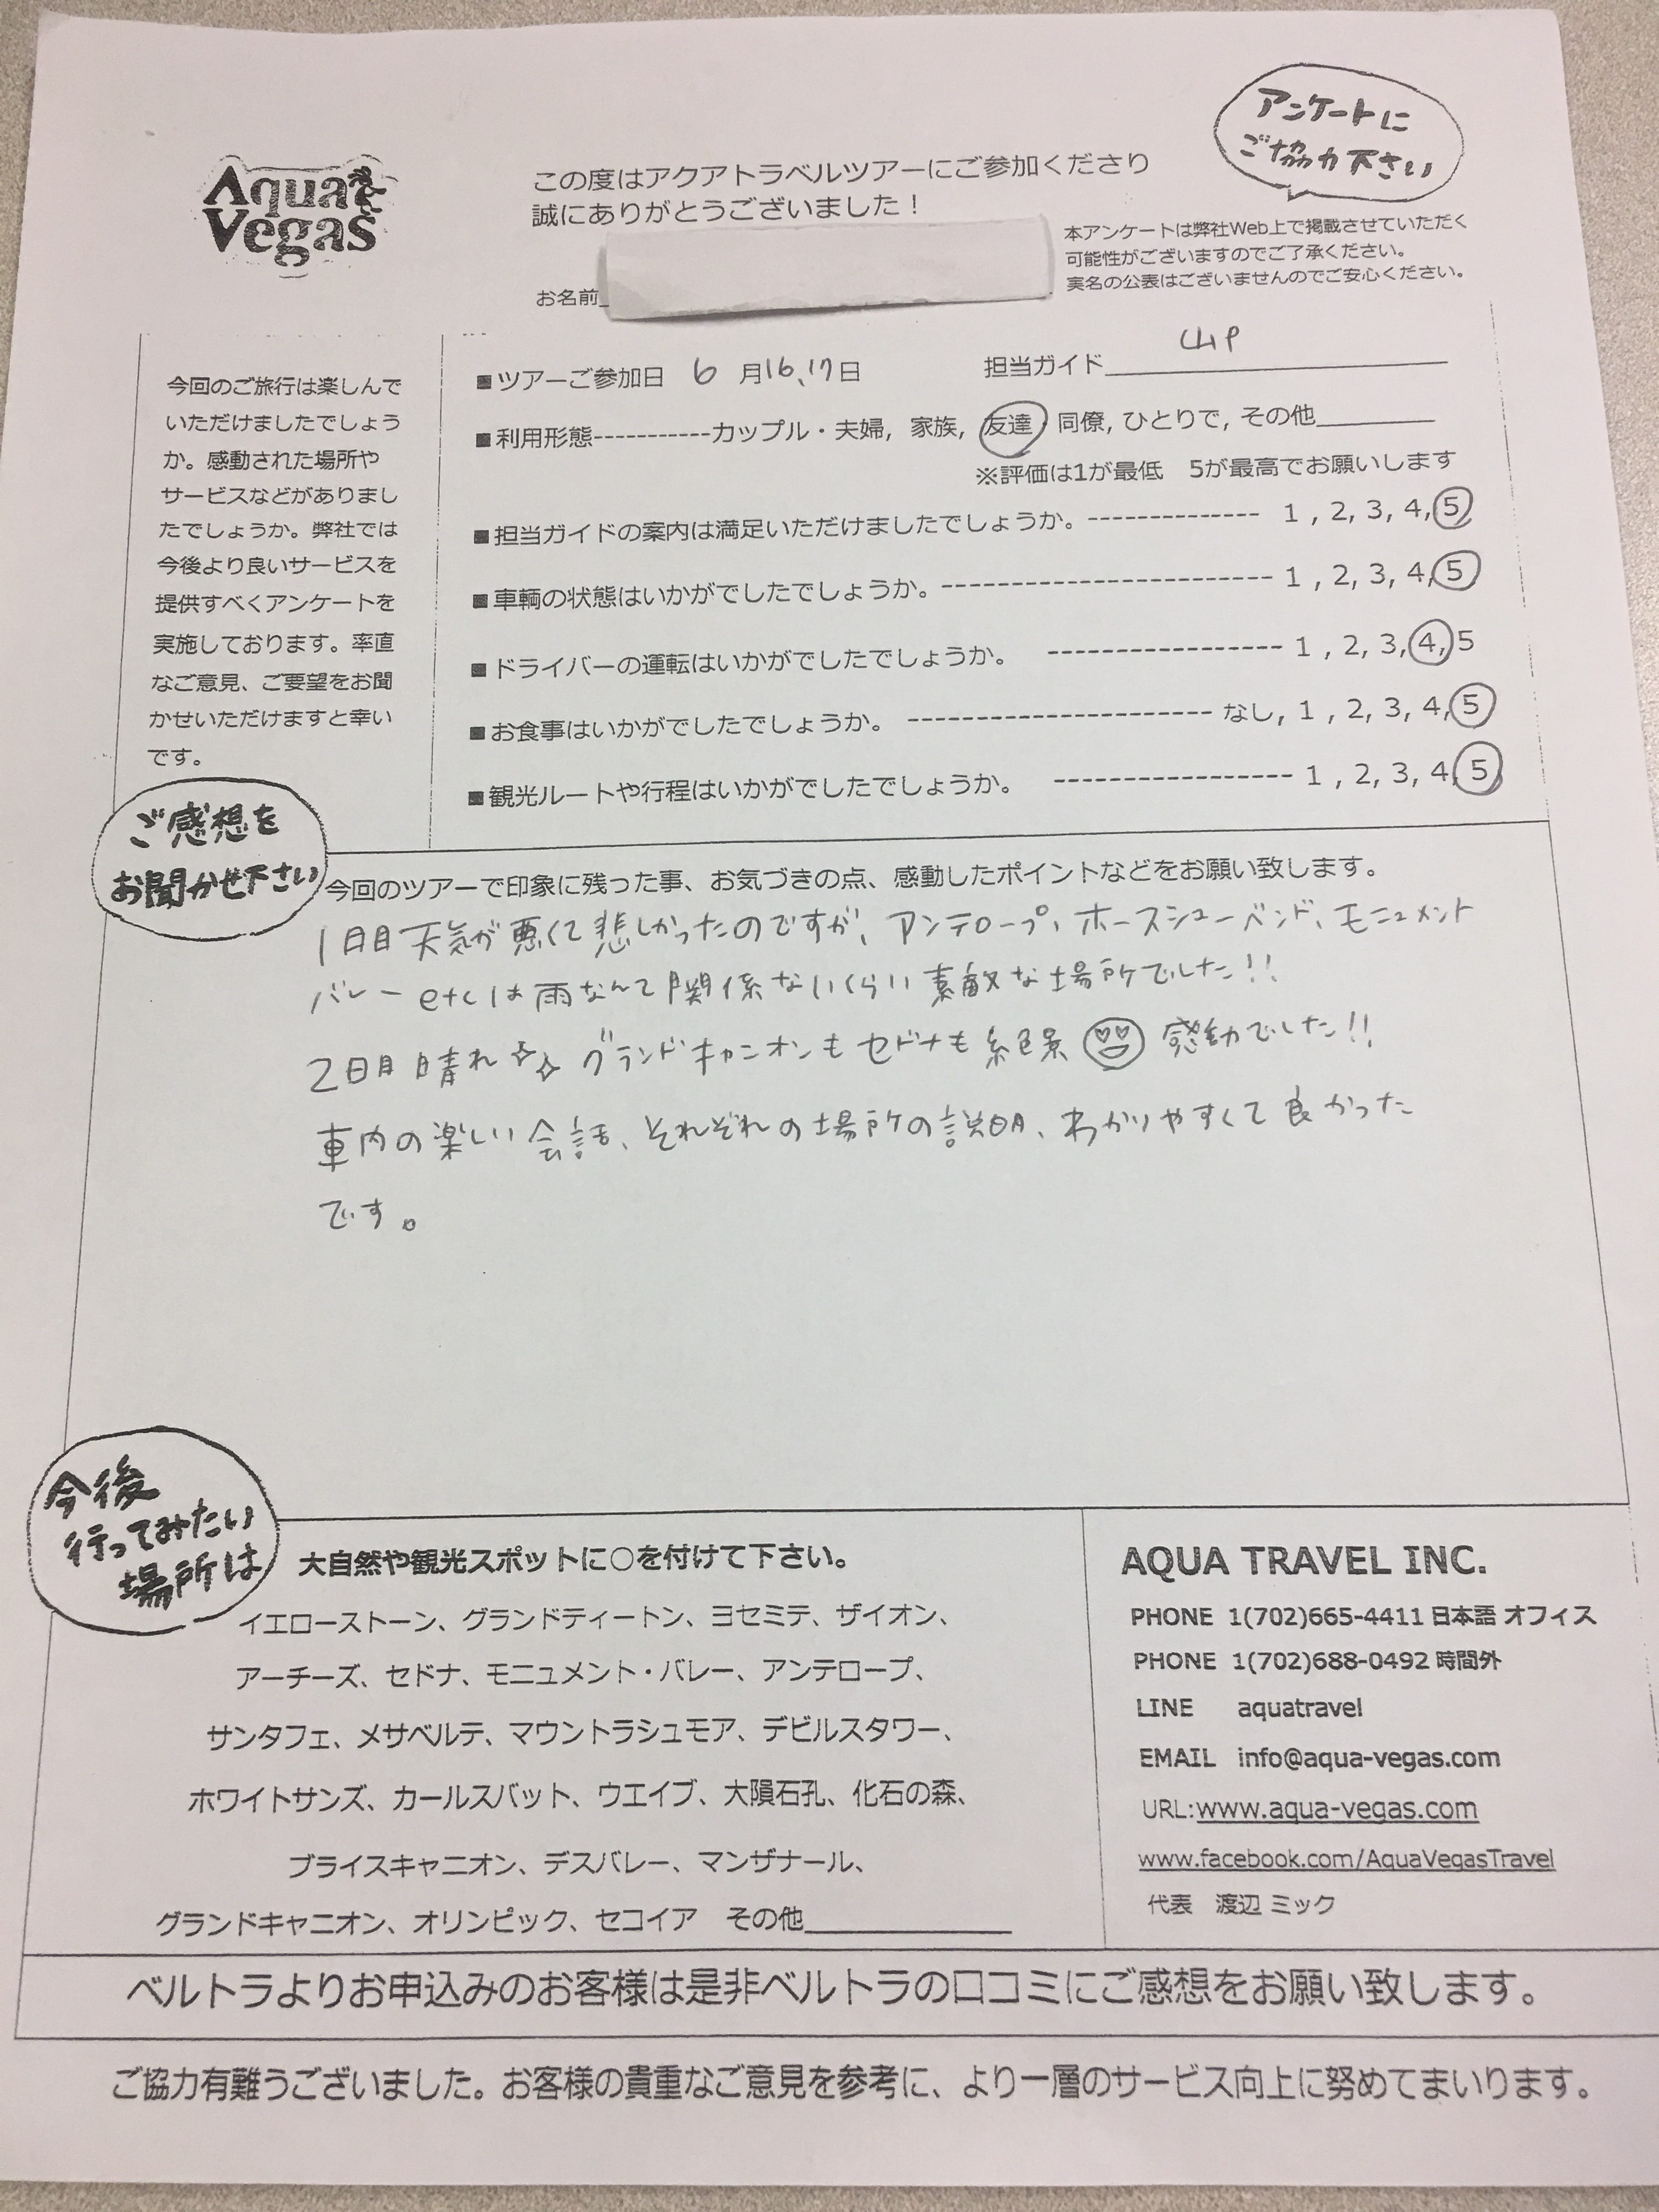 アンケートに
ご協力下さい
Aqua
Vegas
この度はアクアトラベルツアーにご参加くださり
誠にありがとうございました！
本アンケートは弊社Web上で掲載させていただく
可能性がございますのでご了承ください。
実名の公表はございませんのでご安心ください。
お名前
今回のご旅行は楽しんで
いただけましたでしょう
か。感動された場所や
サービスなどがありまし
たでしょうか。弊社では
今後より良いサービスを
提供すべくアンケートを
実施しております。率直
なご意見、ご要望をお聞
かせいただけますと幸い
です。
■ツアーご参加日 6月16、17日 担当ガイド
■利用形態-----------カップル・夫婦, 家族, 友達, 同僚, ひとりで, その他
※評価は1が最低 5が最高でお願いします
■担当ガイドの案内は満足いただけましたでしょうか。------------- 1 , 2, 3, 4, 5
■車輌の状態はいかがでしたでしょうか。------------------------- 1 , 2, 3, 4, 5
■ドライバーの運転はいかがでしたでしょうか。 ------------------ 1 , 2, 3, 4, 5
■お食事はいかがでしたでしょうか。 ----------------------- なし, 1 , 2, 3, 4, 5
■観光ルートや行程はいかがでしたでしょうか。 ------------------ 1 , 2, 3, 4, 5
ご感想を
お聞かせ下さい
今回のツアーで印象に残った事、お気づきの点、感動したポイントなどをお願い致します。
1日目天気が悪くて悲しかったのですが、アンテロープ、ホースシューベンド、モニュメント
バレーetcは雨なんて関係ないくらい素敵な場所でした!!
2日目晴れ グランドキャニオンもセドナも絶景 感動でした!!
車内の楽しい会話、それぞれの場所の説明、わかりやすくて良かった
です。
今後
行ってみたい
場所は
大自然や観光スポットに○を付けて下さい。
イエローストーン、グランドティートン、ヨセミテ、ザイオン、
アーチーズ、セドナ、モニュメント・バレー、アンテロープ、
サンタフェ、メサベルテ、マウントラシュモア、デビルスタワー、
ホワイトサンズ、カールスバット、ウエイブ、大隕石孔、化石の森、
ブライスキャニオン、デスバレー、マンザナール、
グランドキャニオン、オリンピック、セコイア その他
AQUA TRAVEL INC.
PHONE 1(702)665-4411 日本語 オフィス
PHONE 1(702)688-0492 時間外
LINE aquatravel
EMAIL info@aqua-vegas.com
URL:www.aqua-vegas.com
www.facebook.com/AquaVegasTravel
代表 渡辺 ミック
ベルトラよりお申込みのお客様は是非ベルトラの口コミにご感想をお願い致します。
ご協力有難うございました。お客様の貴重なご意見を参考に、より一層のサービス向上に努めてまいります。